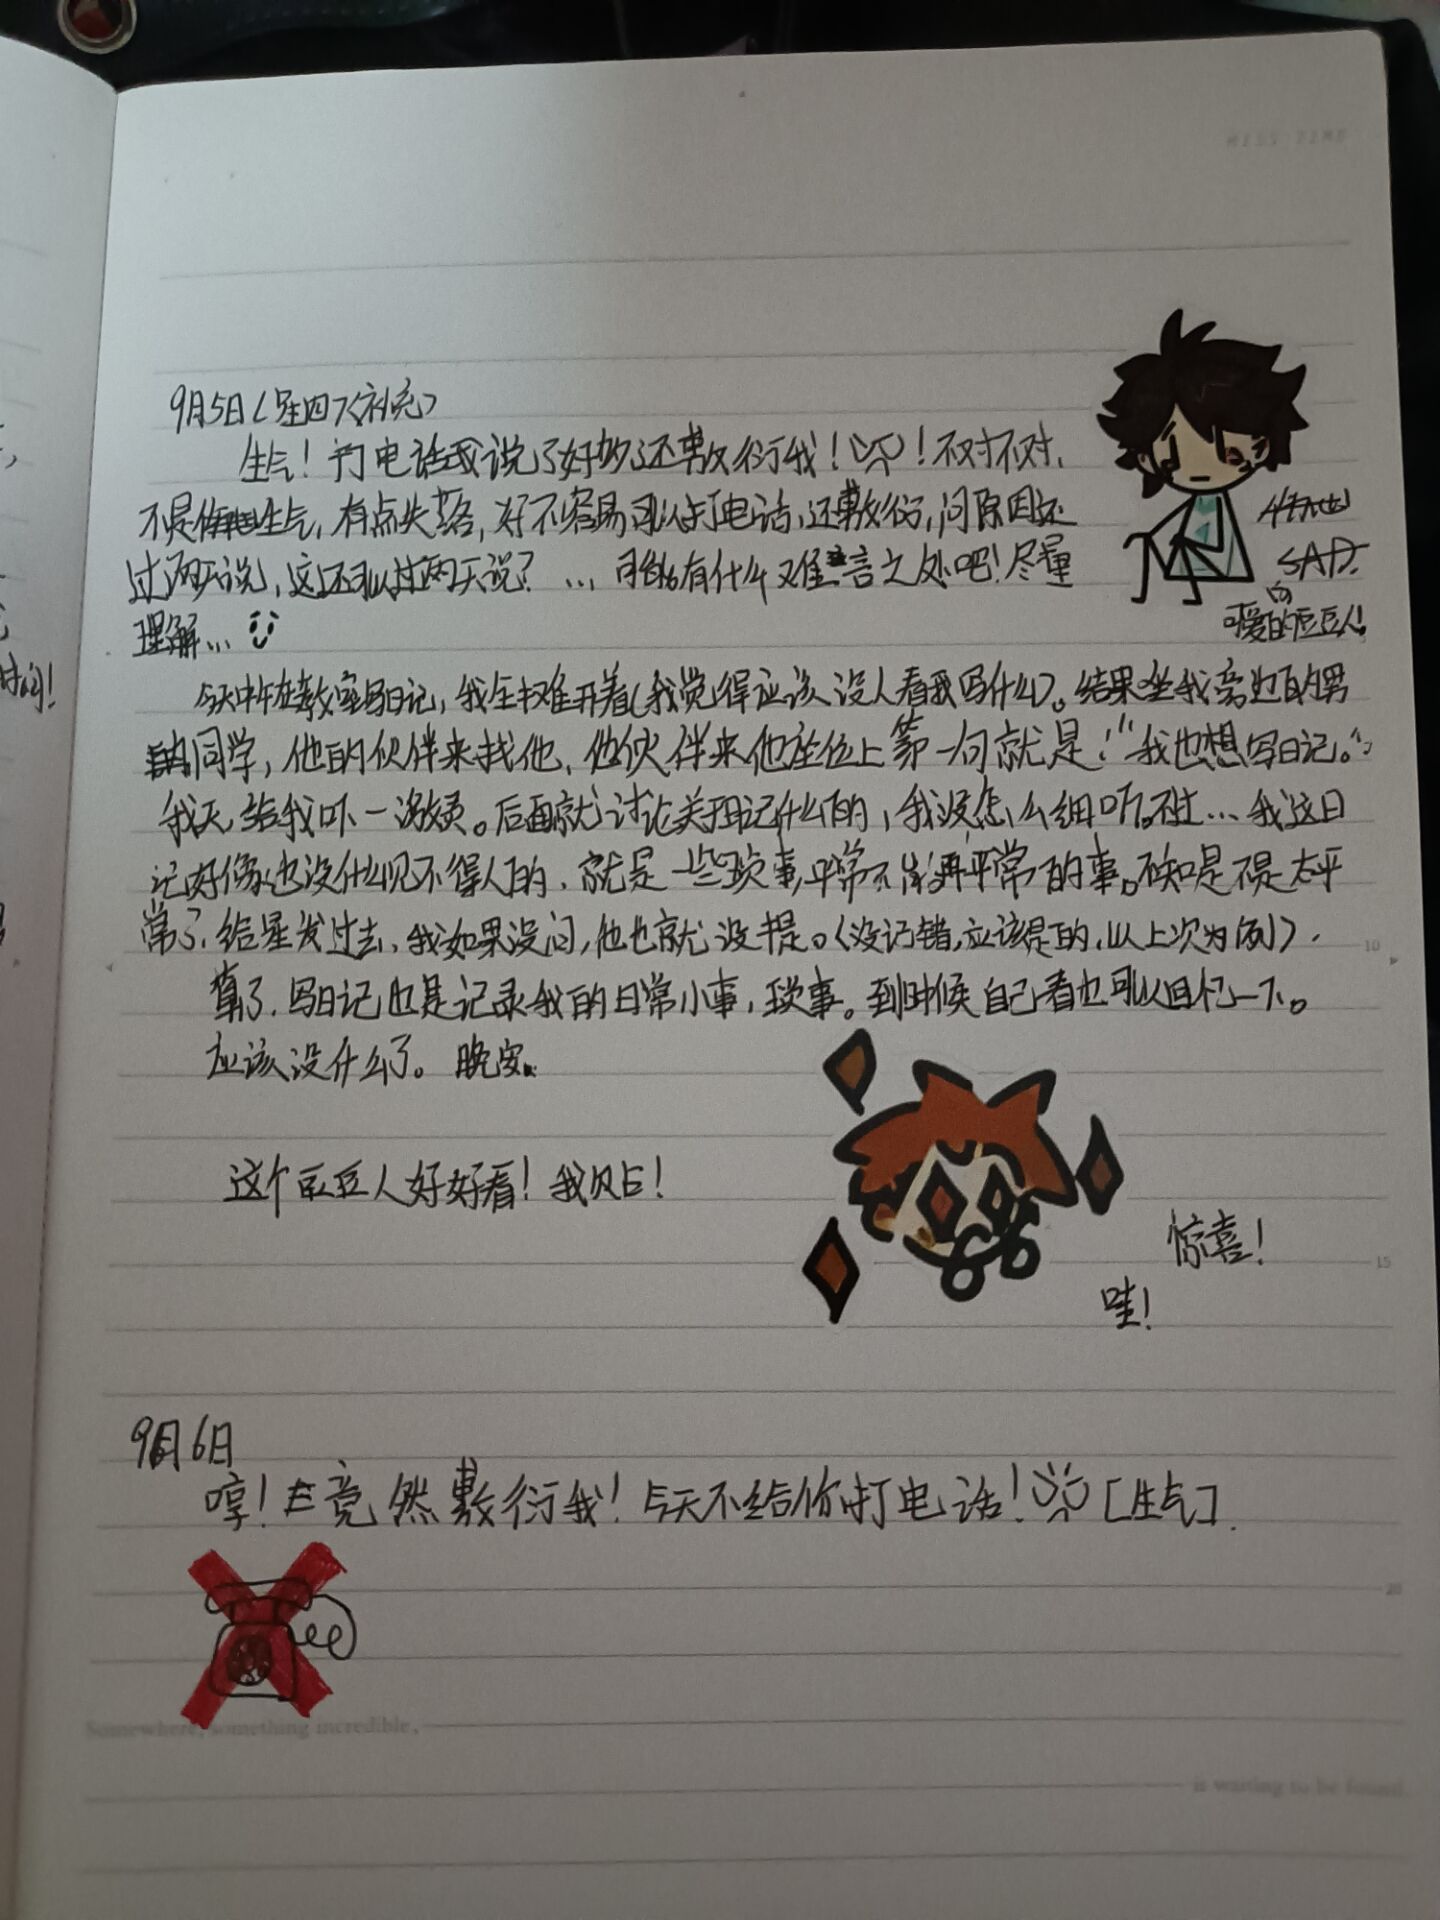 9月5日(星四)<补充>
生气！打电话我说了好多了还敷衍我！！不对不对，
不是生气，有点失落，好不容易可以打电话，还敷衍，问原因还
过两天说，这还可以过两天说？...可能有什么难言之处吧！尽量
理解...
SAD
的
可爱的豆豆人！
今天中午在教室写日记，我全摊开着(我觉得应该没人看我写什么)。结果坐我旁边的男
同学，他的伙伴来找他，他伙伴来他座位上第一句就是："我也想写日记。"
我天，给我吓一激灵。后面就讨论关于日记什么的，我没怎么细听。不过...我这日
记好像也没什么见不得人的，就是一些琐事，平常不能再平常的事。不知是不是太平
常了，给星发过去，我如果没问，他也就没提。(没记错，应该是的，以上次为例)．
算了，写日记也是记录我的日常小事，琐事。到时候自己看也可以回忆一下。
应该没什么了。晚安。
这个豆豆人好好看！我贴！
惊喜！
哇！
9月6日
哼！竟然敷衍我！今天不给你打电话！[生气].
Somewhere, something incredible,
is waiting to be found
10
15
20
时间！